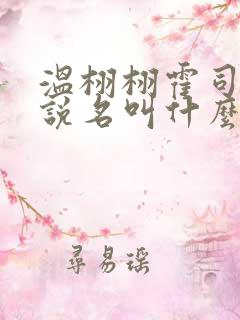 溫栩栩霍司
說名叫什麼
尋易瑶